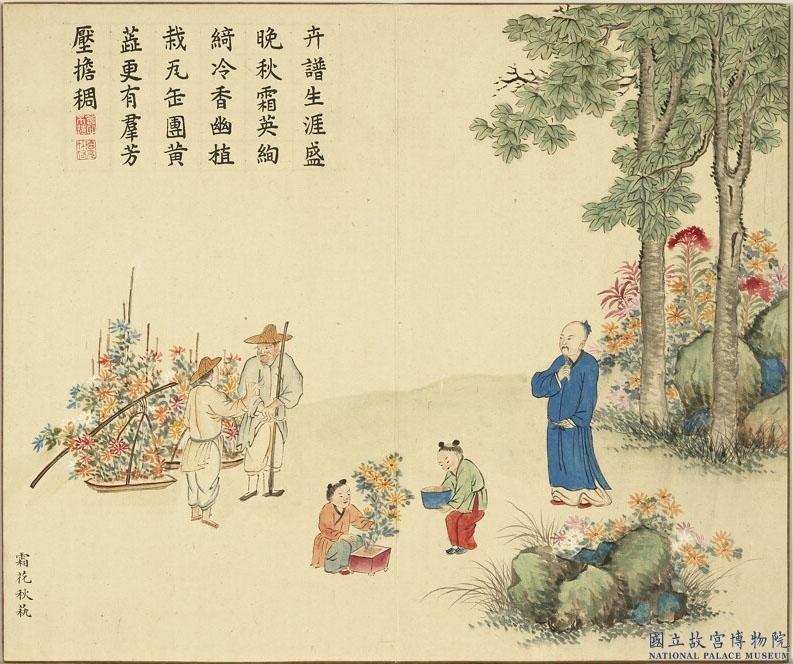 卉譜生涯盛
晚秋霜英絢
綺冷香幽植
栽瓦缶團黃
蕋更有羣芳
壓擔稠
霜花秋蓺
國立故宮博物院
NATIONAL PALACE MUSEUM